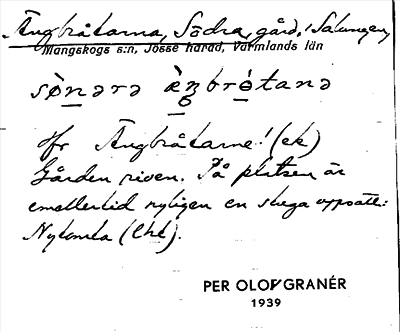 Ängbråtarna, Södra, gård, i Salungen,
Mangskogs s:n, Jösse härad, Värmlands län
sø̀nərə æ̀ŋbrò̱tanə
Jfr Ängbråtarne! (ek)
Gården riven. På platsen är
emellertid nyligen en stuga uppsatt:
Nytomta (lht).
PER OLOF GRANÉR
1939